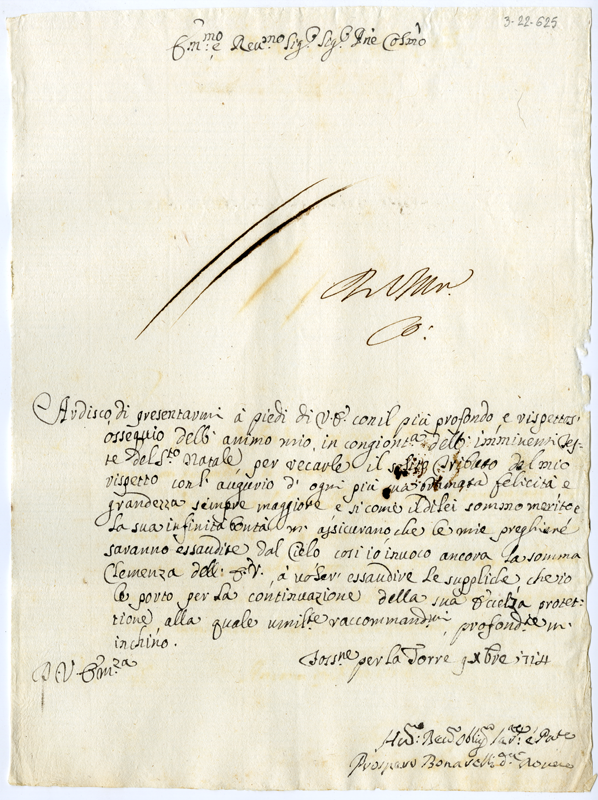 3-22-625
Em.mo e Rev.mo Sig.r Sig.r P̃ne Colmo
Co:
Ardisco di presentarmi à piedi di V.E. con il più profondo, e rispettos:
ossequio dell' animo mio, in congiont.a dell' imminenti Fes-
te del S.to Natale, per recarle il solito Tributo del mio
rispetto con l' augurio d' ogni più fortunata felicità e
grandezza sempre maggiore, e si come il di lei sommo merito e
la sua infinita bontà mi assicurano che le mie preghiere
saranno essaudite dal Cielo così io invoco ancora la somma
Clemenza dell: E.V., à voler essaudire le suppliche che io
le porto per la continuazione della sua Eccelsa protet-
tione, alla quale umilte raccommand.mi, profond.te m'
inchino.
D V. Em.za
per la Torre 9 Xbre 1714
Prospero Bonarelli della Rovere